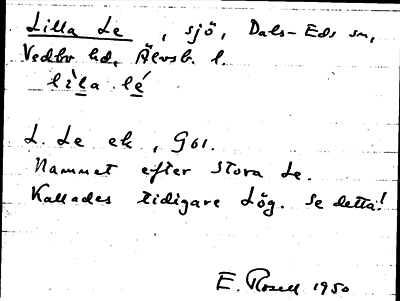 Lilla Le, sjö, Dals-Eds sn,
Vedbo hd, Älvsb. l.
lìla lé
L. Le ek, G61.
Namnet efter Stora Le.
Kallades tidigare Lög. Se detta!
E. Rosell 1950